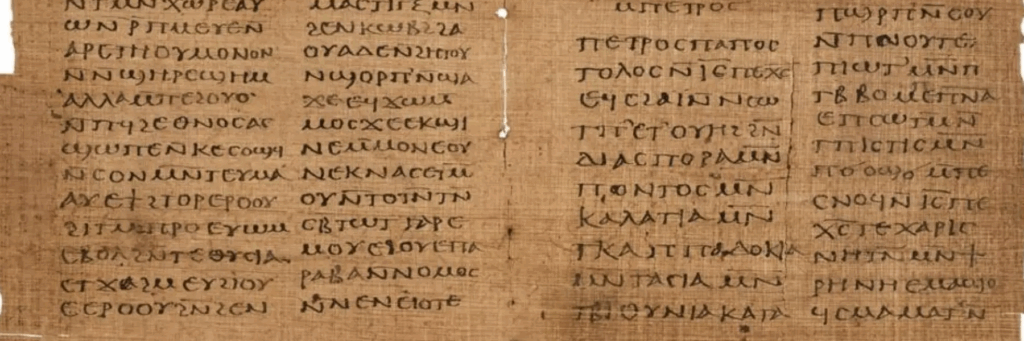 ⲛⲧⲙⲛϫⲱⲣⲉⲁⲩ
ⲱⲛⲣⲡⲙⲉⲩⲉⲛ
ⲁⲣⲉⲧⲏⲟⲩⲙⲟⲛⲟⲛ
ⲛⲛϣⲏⲣⲉϣⲏⲙ
ⲁⲗⲗⲁⲙ̅ⲡⲉϩⲟⲩⲟ
ⲛⲡϥϩⲉⲑⲛⲟⲥⲁⲥ
ϣⲱⲡⲉⲛⲕⲉⲥⲟⲡϥ
ⲛⲥⲟⲛⲙⲛⲧⲉⲩⲙⲁ
ⲁⲩⲉϯϩⲧⲟⲣⲉⲣⲟⲟⲩ
ϩⲓⲧⲙⲡⲣⲣⲟⲉⲩⲱⲙ
ⲉⲃⲟⲗϩⲛⲧⲉⲑⲩⲥⲓⲁ
ⲉⲧϫⲁϩⲙⲉⲩϩⲓⲟⲩ
ⲉⲉⲣⲟⲟⲩϩⲛϩⲉⲛ
ⲙⲁⲥⲧⲓⲅⲝⲙⲛ
ϩⲉⲛⲕⲱⲃϩϩⲁ
ⲟⲩⲁⲇⲉⲛϩⲏⲧⲟⲩ
ⲛϣⲟⲣⲡⲛϣⲁ
ϫⲉⲉϥϫⲱⲙ
ⲙⲟⲥϫⲉⲉⲕϣⲓ
ⲛⲉⲙⲙⲟⲛⲉⲟⲩ
ⲛⲉⲕⲛⲁⲥⲉⲓⲙ
ⲟⲩⲛ̅ⲧⲟⲓⲛⲧⲛ
ⲥⲃⲧⲱⲧⲅⲁⲣⲉ
ⲙⲟⲩⲉϩⲟⲩⲉⲡⲁ
ⲣⲁⲃⲁⲛⲛⲟⲙⲟⲥ
ⲛ̅ⲛⲉⲛⲉⲓⲟⲧⲉ
ⲙⲡⲉⲧⲣⲟⲥ
ⲡⲉⲧⲣⲟⲥⲡⲁⲡⲟⲥ
ⲧⲟⲗⲟⲥⲛ̅ⲓ̅ⲥ̅ⲡⲉⲭⲥ
ⲉϥⲥϩⲁⲓⲛ̅ⲛⲥⲱ
ⲧⲡⲉⲧⲟⲩⲏϩϩⲛ
ⲇⲓⲁⲥⲡⲟⲣⲁⲙⲛ̅
ⲡⲟⲛⲧⲟⲥⲙⲛ̅
ⲕⲁⲗⲁⲧⲓⲁⲙⲛ̅
ⲧⲕⲁⲡⲡⲁⲇⲟⲕⲓⲁ
ⲙⲛⲧⲁⲥⲓⲁⲙⲛ
ⲧⲃⲓⲑⲩⲛⲓⲁⲕⲁⲧⲁ
ⲡϣⲣⲡⲛ̅ⲥⲟⲩ
ⲛ̅ⲡⲛⲟⲩⲧⲉ
ⲡⲓⲱⲧⲙⲛ̅ⲡ
ⲧⲃⲃⲟⲙⲡⲉⲡⲛⲁ
ⲉⲡⲥⲱⲧⲙⲛ̅
ⲧⲡⲓⲥⲧⲓⲥⲙⲛ
ⲡⲟⲩⲱϣⲙ̅ⲡⲉ
ⲥⲛⲟϥⲛ̅ⲓ̅ⲥ̅ⲡⲉ
ⲭ̅ⲥ̅ⲧⲉⲭⲁⲣⲓⲥ
ⲛⲏⲧⲛⲙⲛϯ
ⲣⲏⲛⲏⲉⲙⲁϣⲟ
ϥⲥⲙⲁⲙⲁⲧⲛ̅